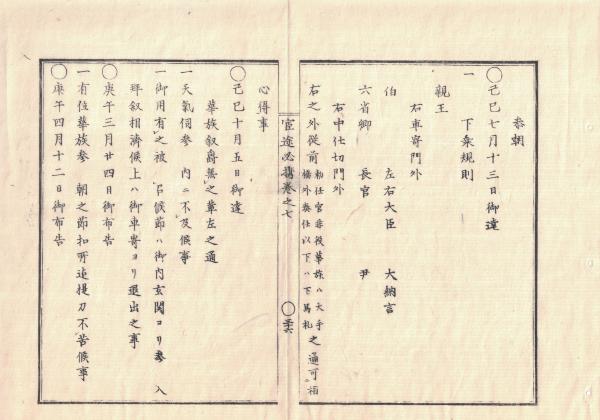 参朝
〇己巳七月十三日御達
一 下乗規則
親王
右車寄門外
伯 左右大臣 大納言
六省卿 長官 尹
右中仕切門外
右之外従前 勅任官非役華族ハ大手
橋外奏任以下ハ下馬札 之通可相
心得事
宦途必携巻之七
〇己巳十月五日御達
華族叙爵無之輩左之通
一天氣伺参 内ニ不及候事
一御用有之被 召候節ハ御内玄関ヨリ参 入
拝叙相濟候上ハ御車寄ヨリ退出之事
〇庚午三月廿四日御布告
一有位華族参 朝之節扣所迄提刀不苦候事
〇庚午四月十二日御布告